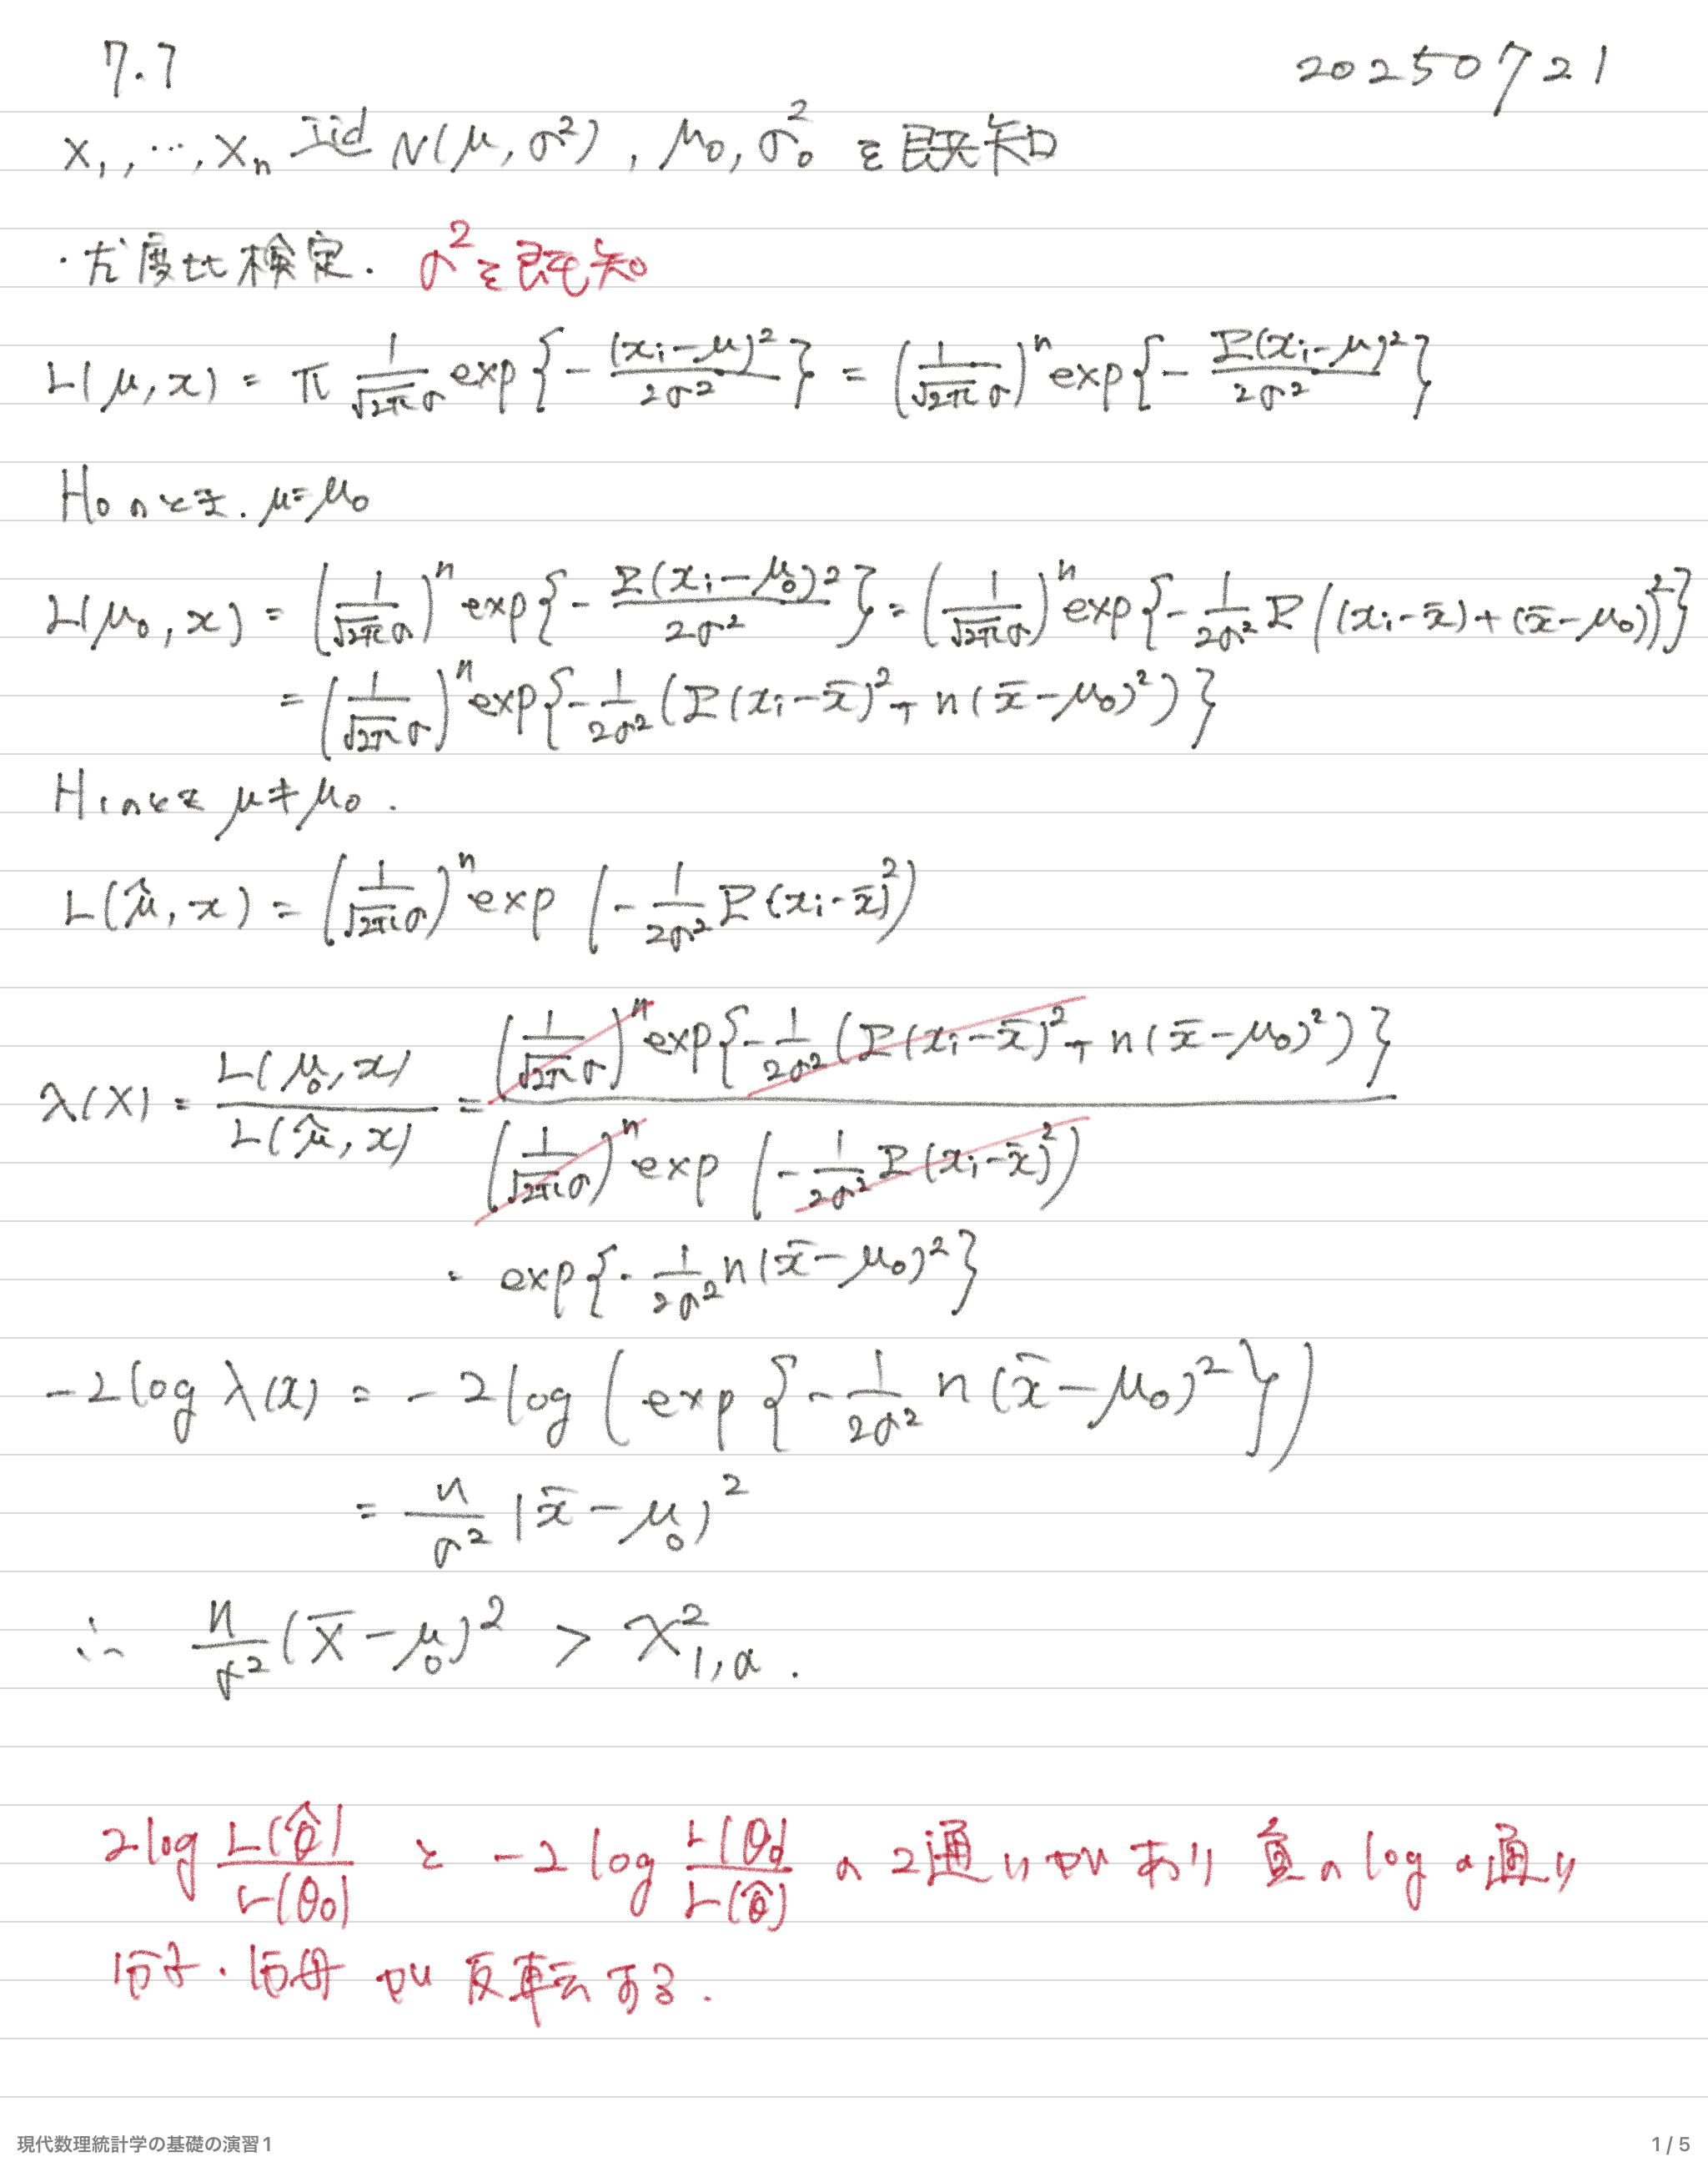 7.7 20250721
X₁, …, Xₙ iid N(μ, σ²), μ₀, σ₀² を既知
・尤度比検定. σ²を既知
L(μ, x) = π 1/(√2π σ) exp{-(xᵢ-μ)²/2σ²} = (1/(√2π σ))ⁿ exp{-Σ(xᵢ-μ)²/2σ²}
H₀のとき. μ=μ₀
L(μ₀, x) = (1/(√2π σ))ⁿ exp{-Σ(xᵢ-μ₀)²/2σ²} = (1/(√2π σ))ⁿ exp{-1/2σ² Σ((xᵢ-x̄)+(x̄-μ₀))²}
= (1/(√2π σ))ⁿ exp{-1/2σ² (Σ(xᵢ-x̄)²+n(x̄-μ₀)²)}
H₁のとき μ≠μ₀.
L(μ̂, x) = (1/(√2π σ))ⁿ exp(-1/2σ² Σ(xᵢ-x̄)²)
λ(X) = L(μ₀, x)/L(μ̂, x) = (1/(√2π σ))ⁿ exp{-1/2σ² (Σ(xᵢ-x̄)²+n(x̄-μ₀)²)} / (1/(√2π σ))ⁿ exp(-1/2σ² Σ(xᵢ-x̄)²)
= exp{-1/2σ² n(x̄-μ₀)²}
-2log λ(x) = -2log(exp{-1/2σ² n(x̄-μ₀)²})
= n/σ² (x̄-μ₀)²
∴ n/σ² (X̄-μ₀)² > χ²₁,α.
2log L(θ̂)/L(θ₀) と -2log L(θ₀)/L(θ̂) の2通りがあり 負のlogの通り
分子・分母が反転する.
現代数理統計学の基礎の演習1 1 / 5